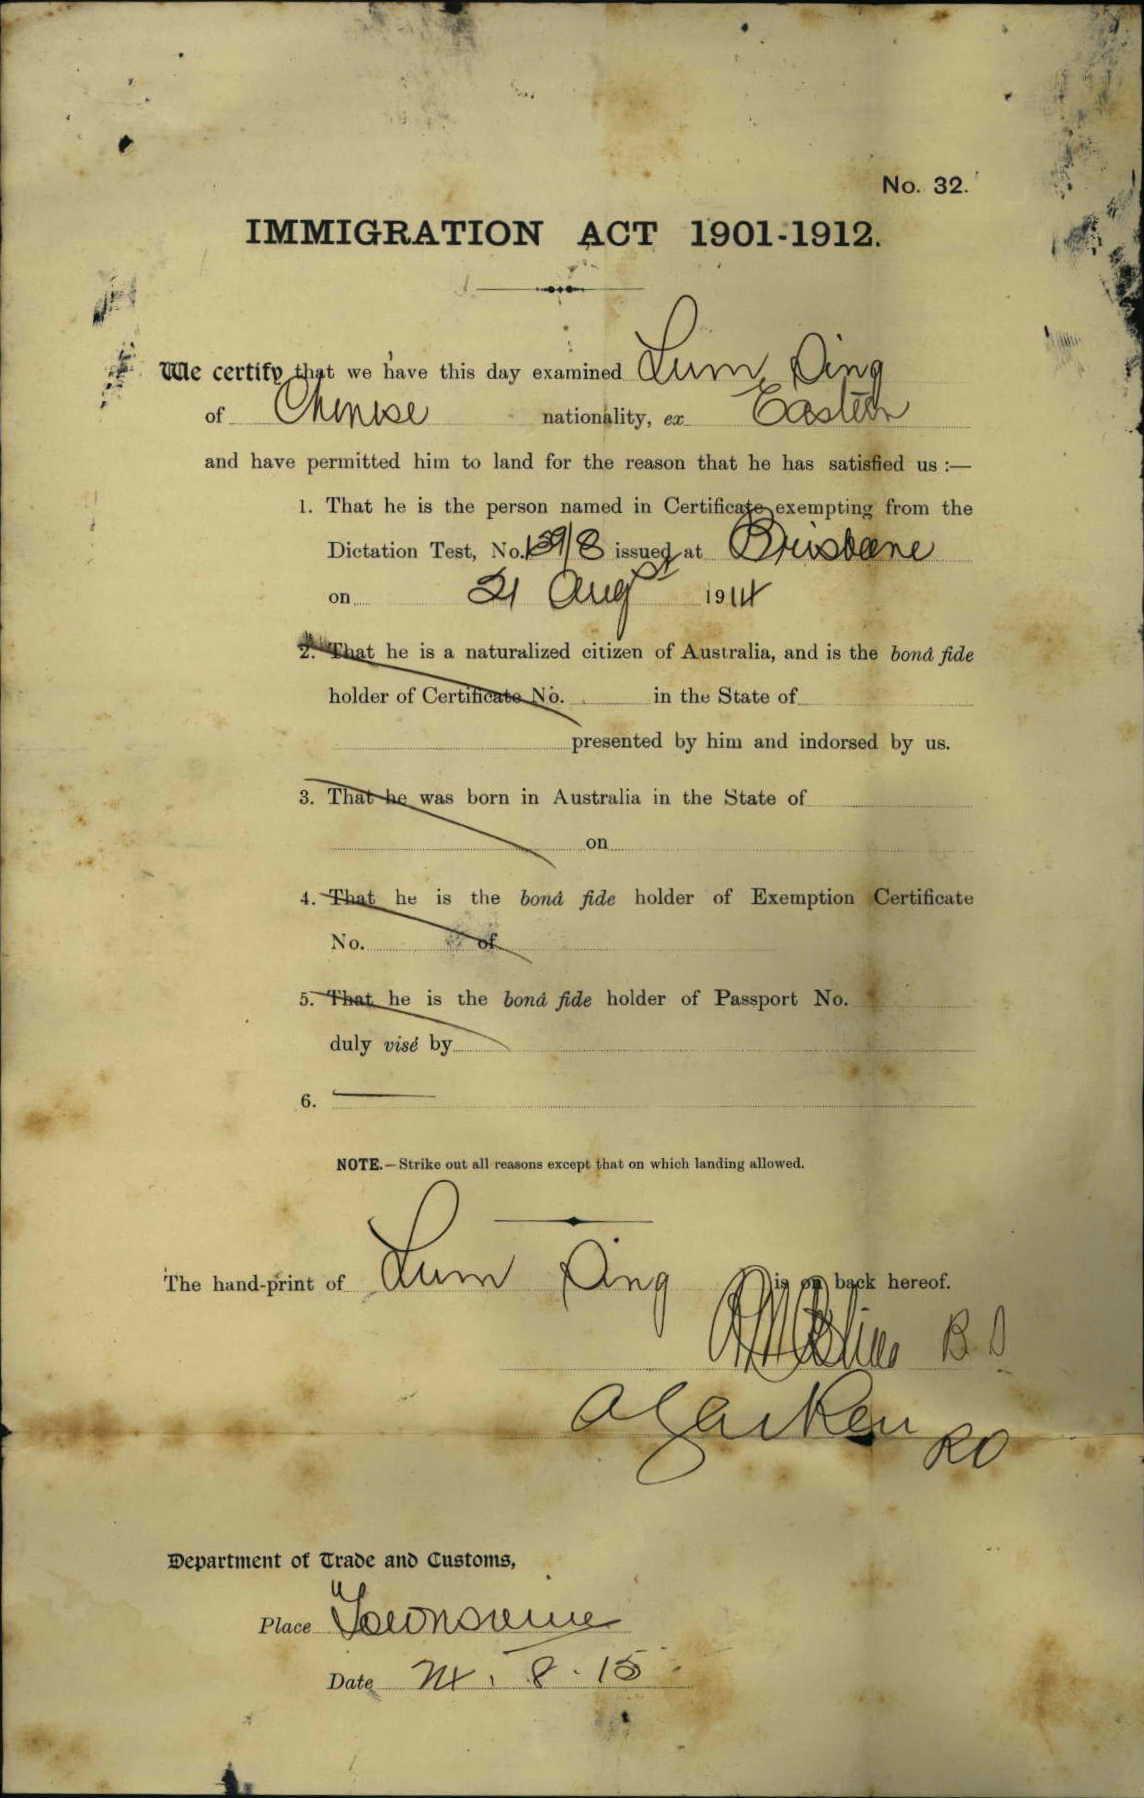 No. 32.
IMMIGRATION ACT 1901-1912.
We certify that we have this day examined Lum Ding
of Chinese nationality, ex Eastern
and have permitted him to land for the reason that he has satisfied us :—
1. That he is the person named in Certificate exempting from the
Dictation Test, No. 159/8 issued at Brisbane
on 21 Augst 1914
2. That he is a naturalized citizen of Australia, and is the bonâ fide
holder of Certificate No. in the State of
presented by him and indorsed by us.
3. That he was born in Australia in the State of
on
4. That he is the bonâ fide holder of Exemption Certificate
No. of
5. That he is the bonâ fide holder of Passport No.
duly visé by
6.
NOTE.—Strike out all reasons except that on which landing allowed.
The hand-print of Lum Ding is on back hereof.
Department of Trade and Customs,
Place Townsville
Date 24. 8. 15